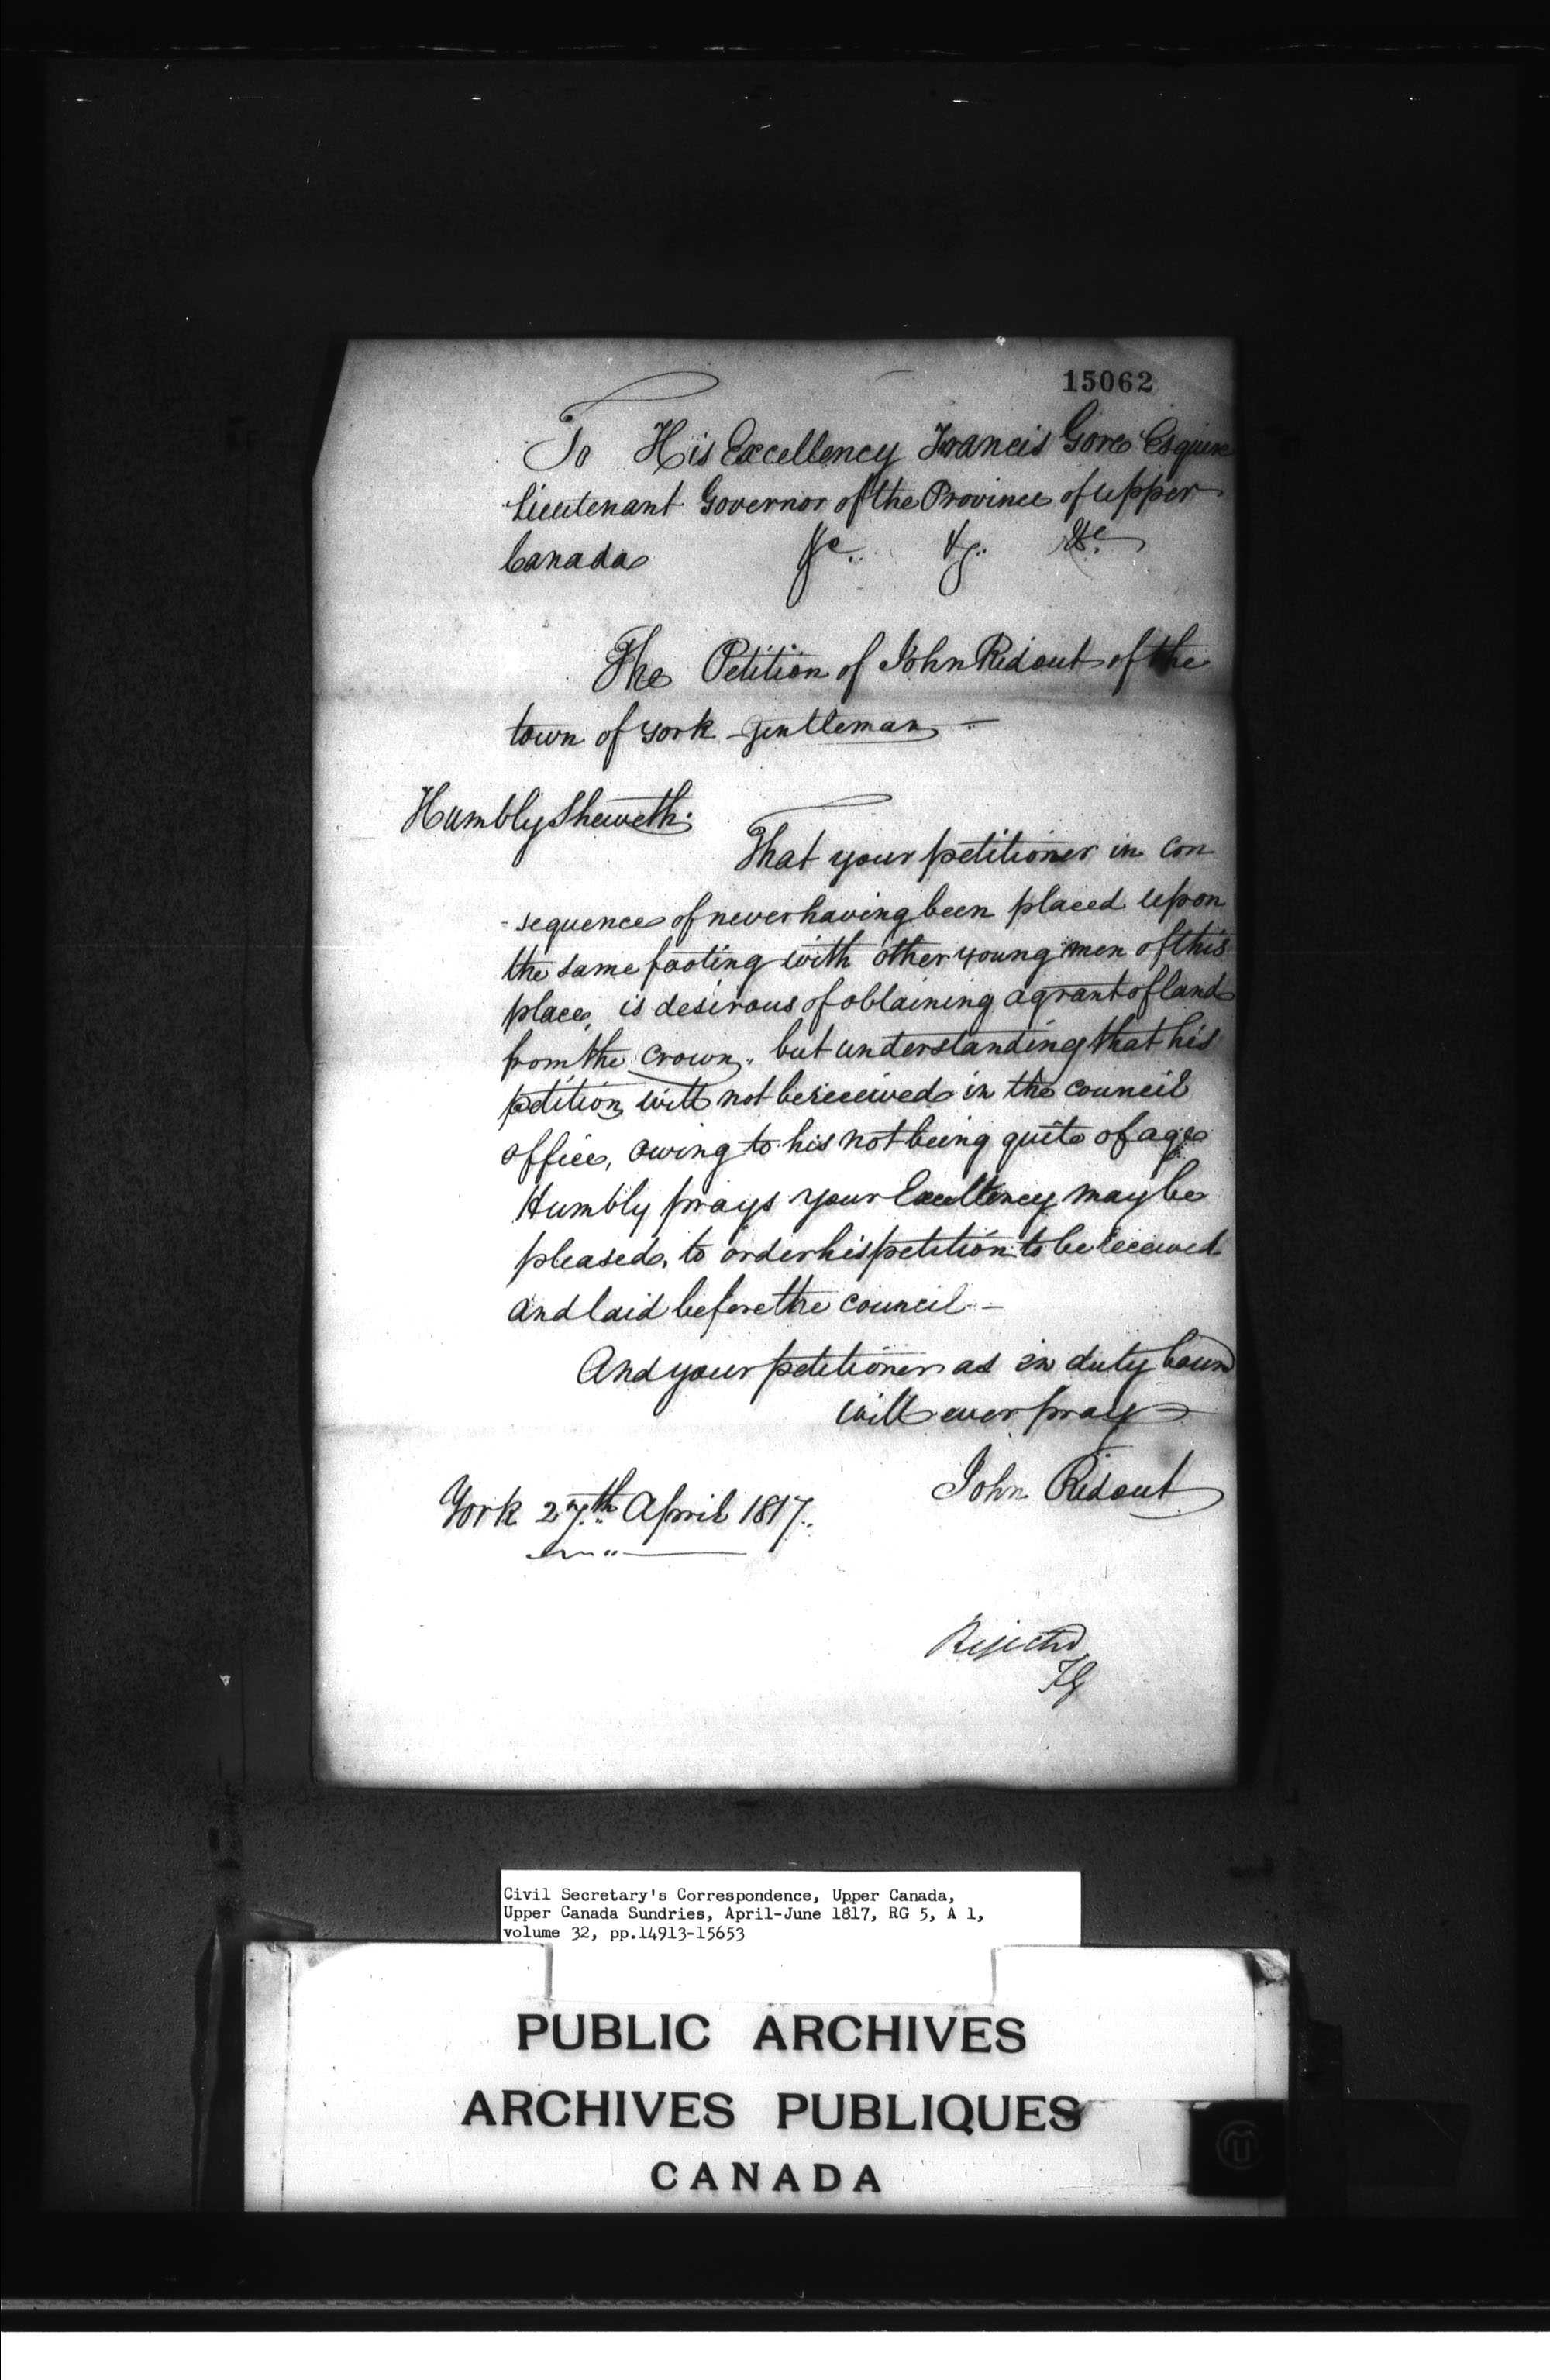 15062
To His Excellency Francis Gore Esquire
Lieutenant Governor of the Province of upper
Canada &c. &c. &c.
The Petition of John Ridout of the
town of York gentleman —
Humbly Sheweth.
That your petitioner in con
-sequence of never having been placed upon
the same footing with other young men of this
place, is desirous of obtaining a grant of land
from the crown, but understanding that his
petition will not be received in the council
office, owing to his not being quite of age
Humbly prays your Excellency may be
pleased, to order his petition to be received
and laid before the council —
And your petitioner as in duty boun
will ever pray
John Ridout
York 27th April 1817.
Rejected
FG
Civil Secretary's Correspondence, Upper Canada,
Upper Canada Sundries, April-June 1817, RG 5, A 1,
volume 32, pp.14913-15653
PUBLIC ARCHIVES
ARCHIVES PUBLIQUES
CANADA